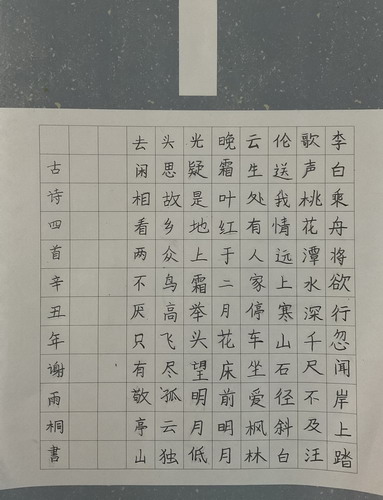 李白乘舟将欲行忽闻岸上踏
歌声桃花潭水深千尺不及汪
伦送我情远上寒山石径斜白
云生处有人家停车坐爱枫林
晚霜叶红于二月花床前明月
光疑是地上霜举头望明月低
头思故乡众鸟高飞尽孤云独
去闲相看两不厌只有敬亭山
古诗四首辛丑年谢雨桐書